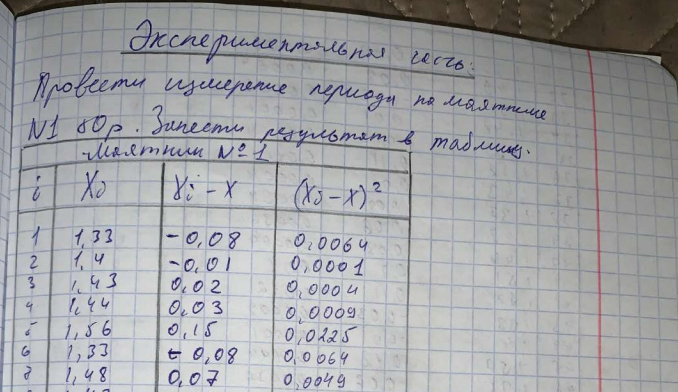 Экспериментальная часть:
Провести измерение периода на маятнике
N1 80р. Занести результат в таблицу.
Маятник №1
i Xi Xi - X (Xi - X)²
1 1,33 -0,08 0,0064
2 1,4 -0,01 0,0001
3 1,43 0,02 0,0004
4 1,44 0,03 0,0009
5 1,56 0,15 0,0225
6 1,33 -0,08 0,0064
7 1,48 0,07 0,0049